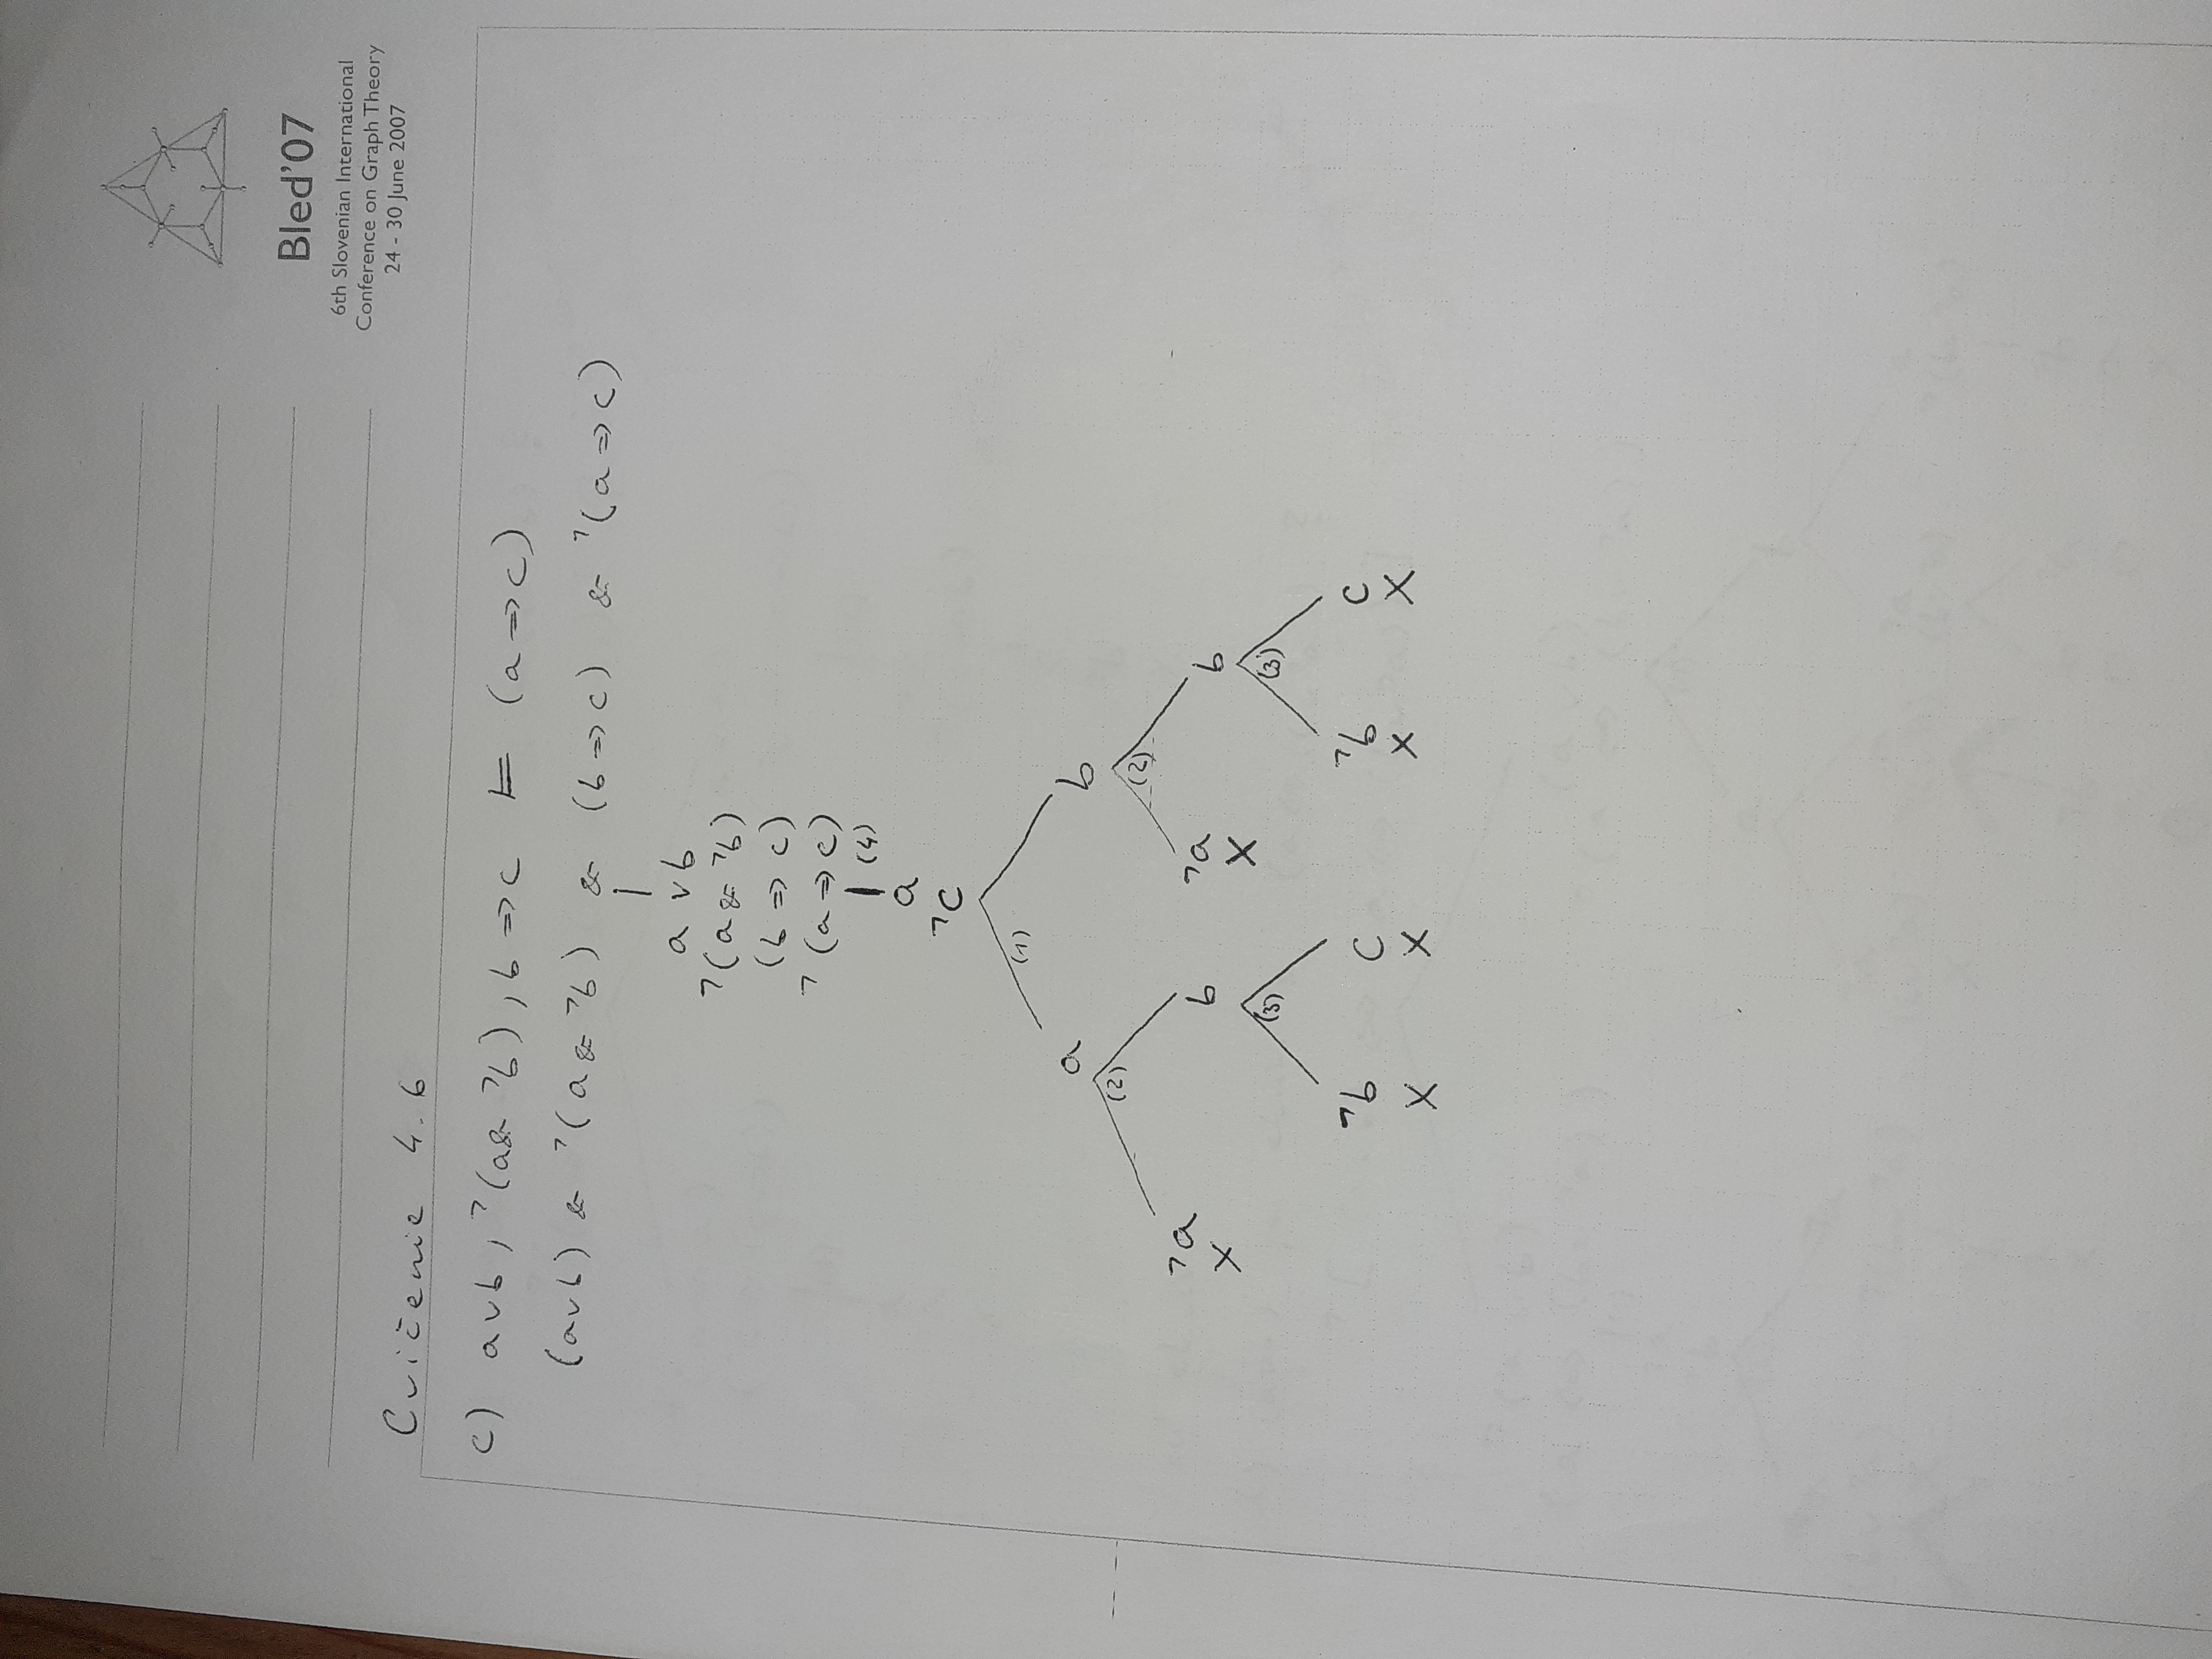 Bled'07
6th Slovenian International
Conference on Graph Theory
24 - 30 June 2007
Cvičenie 4.6
c) a∨b, ¬(a & ¬b), b => c ⊨ (a => c)
(a∨b) & ¬(a & ¬b) & (b => c) & ¬(a => c)
a ∨ b
¬(a & ¬b)
(b => c)
¬(a => c)
(4)
a
¬c
(1)
a b
(2) (2)
¬a b ¬a b
x x
(3) (3)
¬b c ¬b c
x x x x